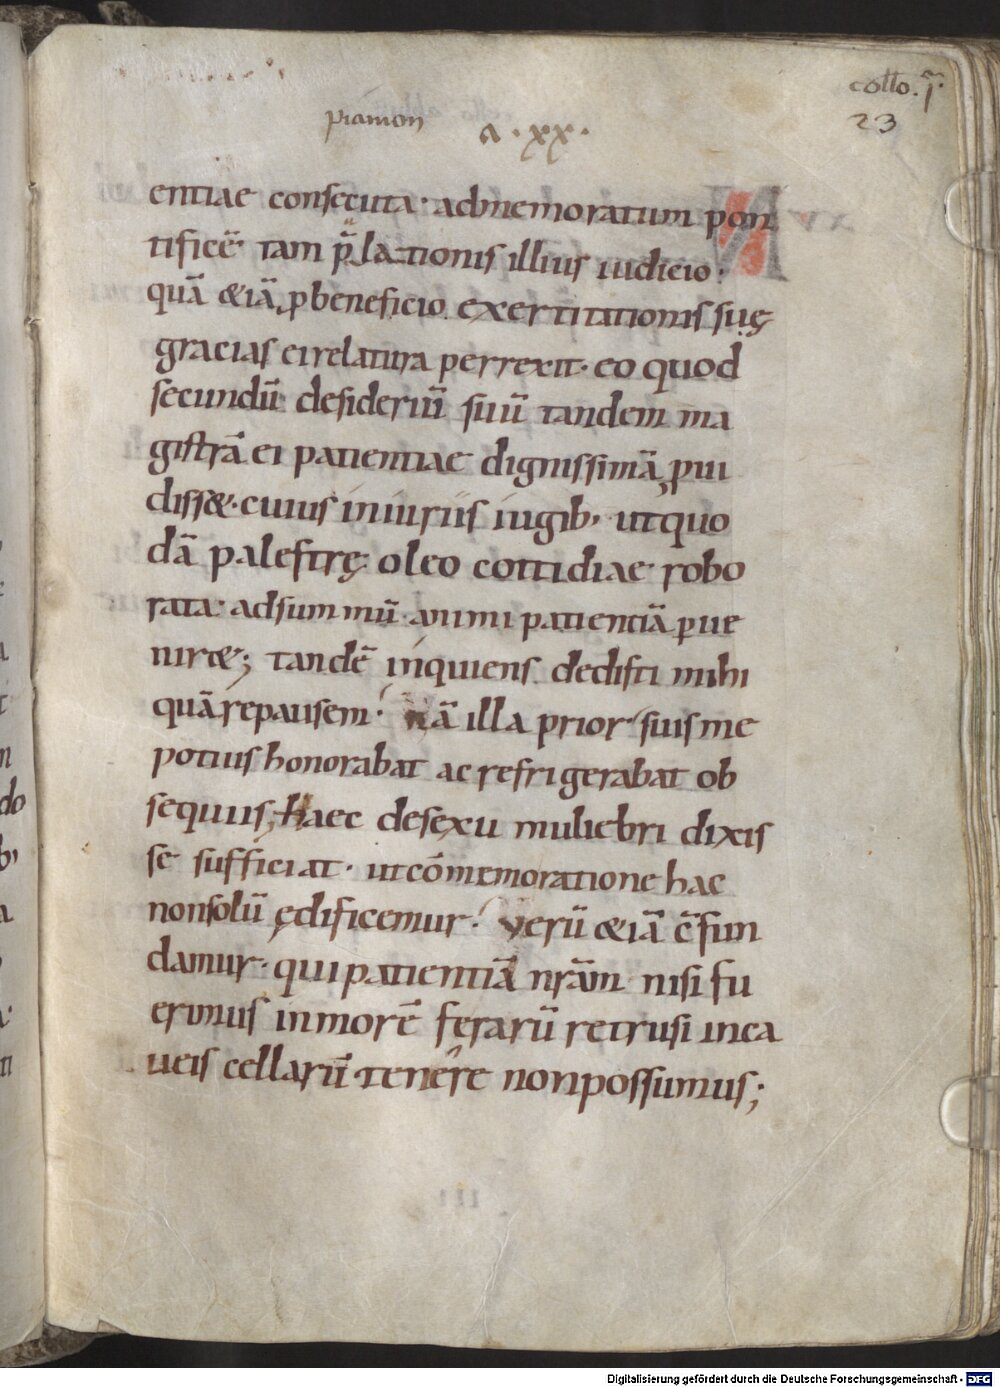 collo. j.
23
piamon
a · xx ·
entiae consecuta · admemoratum pon
tificē tam p̄lationis illius iudicio ·
quā &iā ꝓbeneficio exertitationis suę
gracias eirelatura perrexit · eo quod
secundū desideriū suū tandem ma
gistrā ei patientiae dignissimā ꝓui
diss& · cuius iniuriis iugib; utquo
dā palestrę oleo cottidiae robo
rata · adsummū animi patientiā ꝑue
nir&; tandē inquiens dedisti mihi
quā repausem · Nā illa prior suis me
potius honorabat ac refrigerabat ob
sequiis; Haec desexu muliebri dixis
se sufficiat · utcōmemoratione hac
nonsolū ędificemur · verū &iā c̄fun
damur · qui patientiā nrām nisi fu
erimus inmorē ferarū retrusi inca
ueis cellarū tenere nonpossumus;
Digitalisierung gefördert durch die Deutsche Forschungsgemeinschaft - DFG